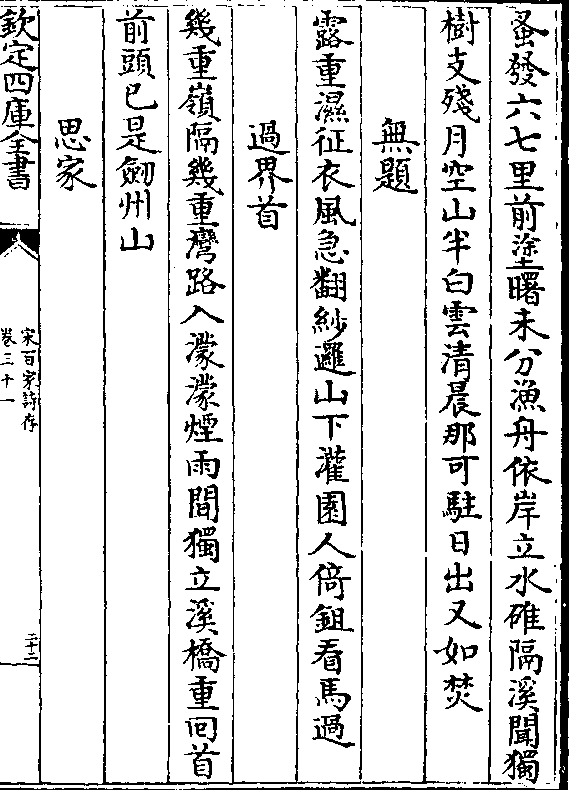 蚤發六七里前塗曙未分漁舟依岸立水碓隔溪聞獨
樹支殘月空山半白雲清晨那可駐日出又如焚
無題
露重濕征衣風急翻紗邏山下灌園人倚鉏看馬過
過界首
幾重嶺隔幾重灣路入濛濛煙雨間獨立溪橋重回首
前頭已是劒州山
思家
欽定四庫全書
宋百家詩存
卷三十一
三十二